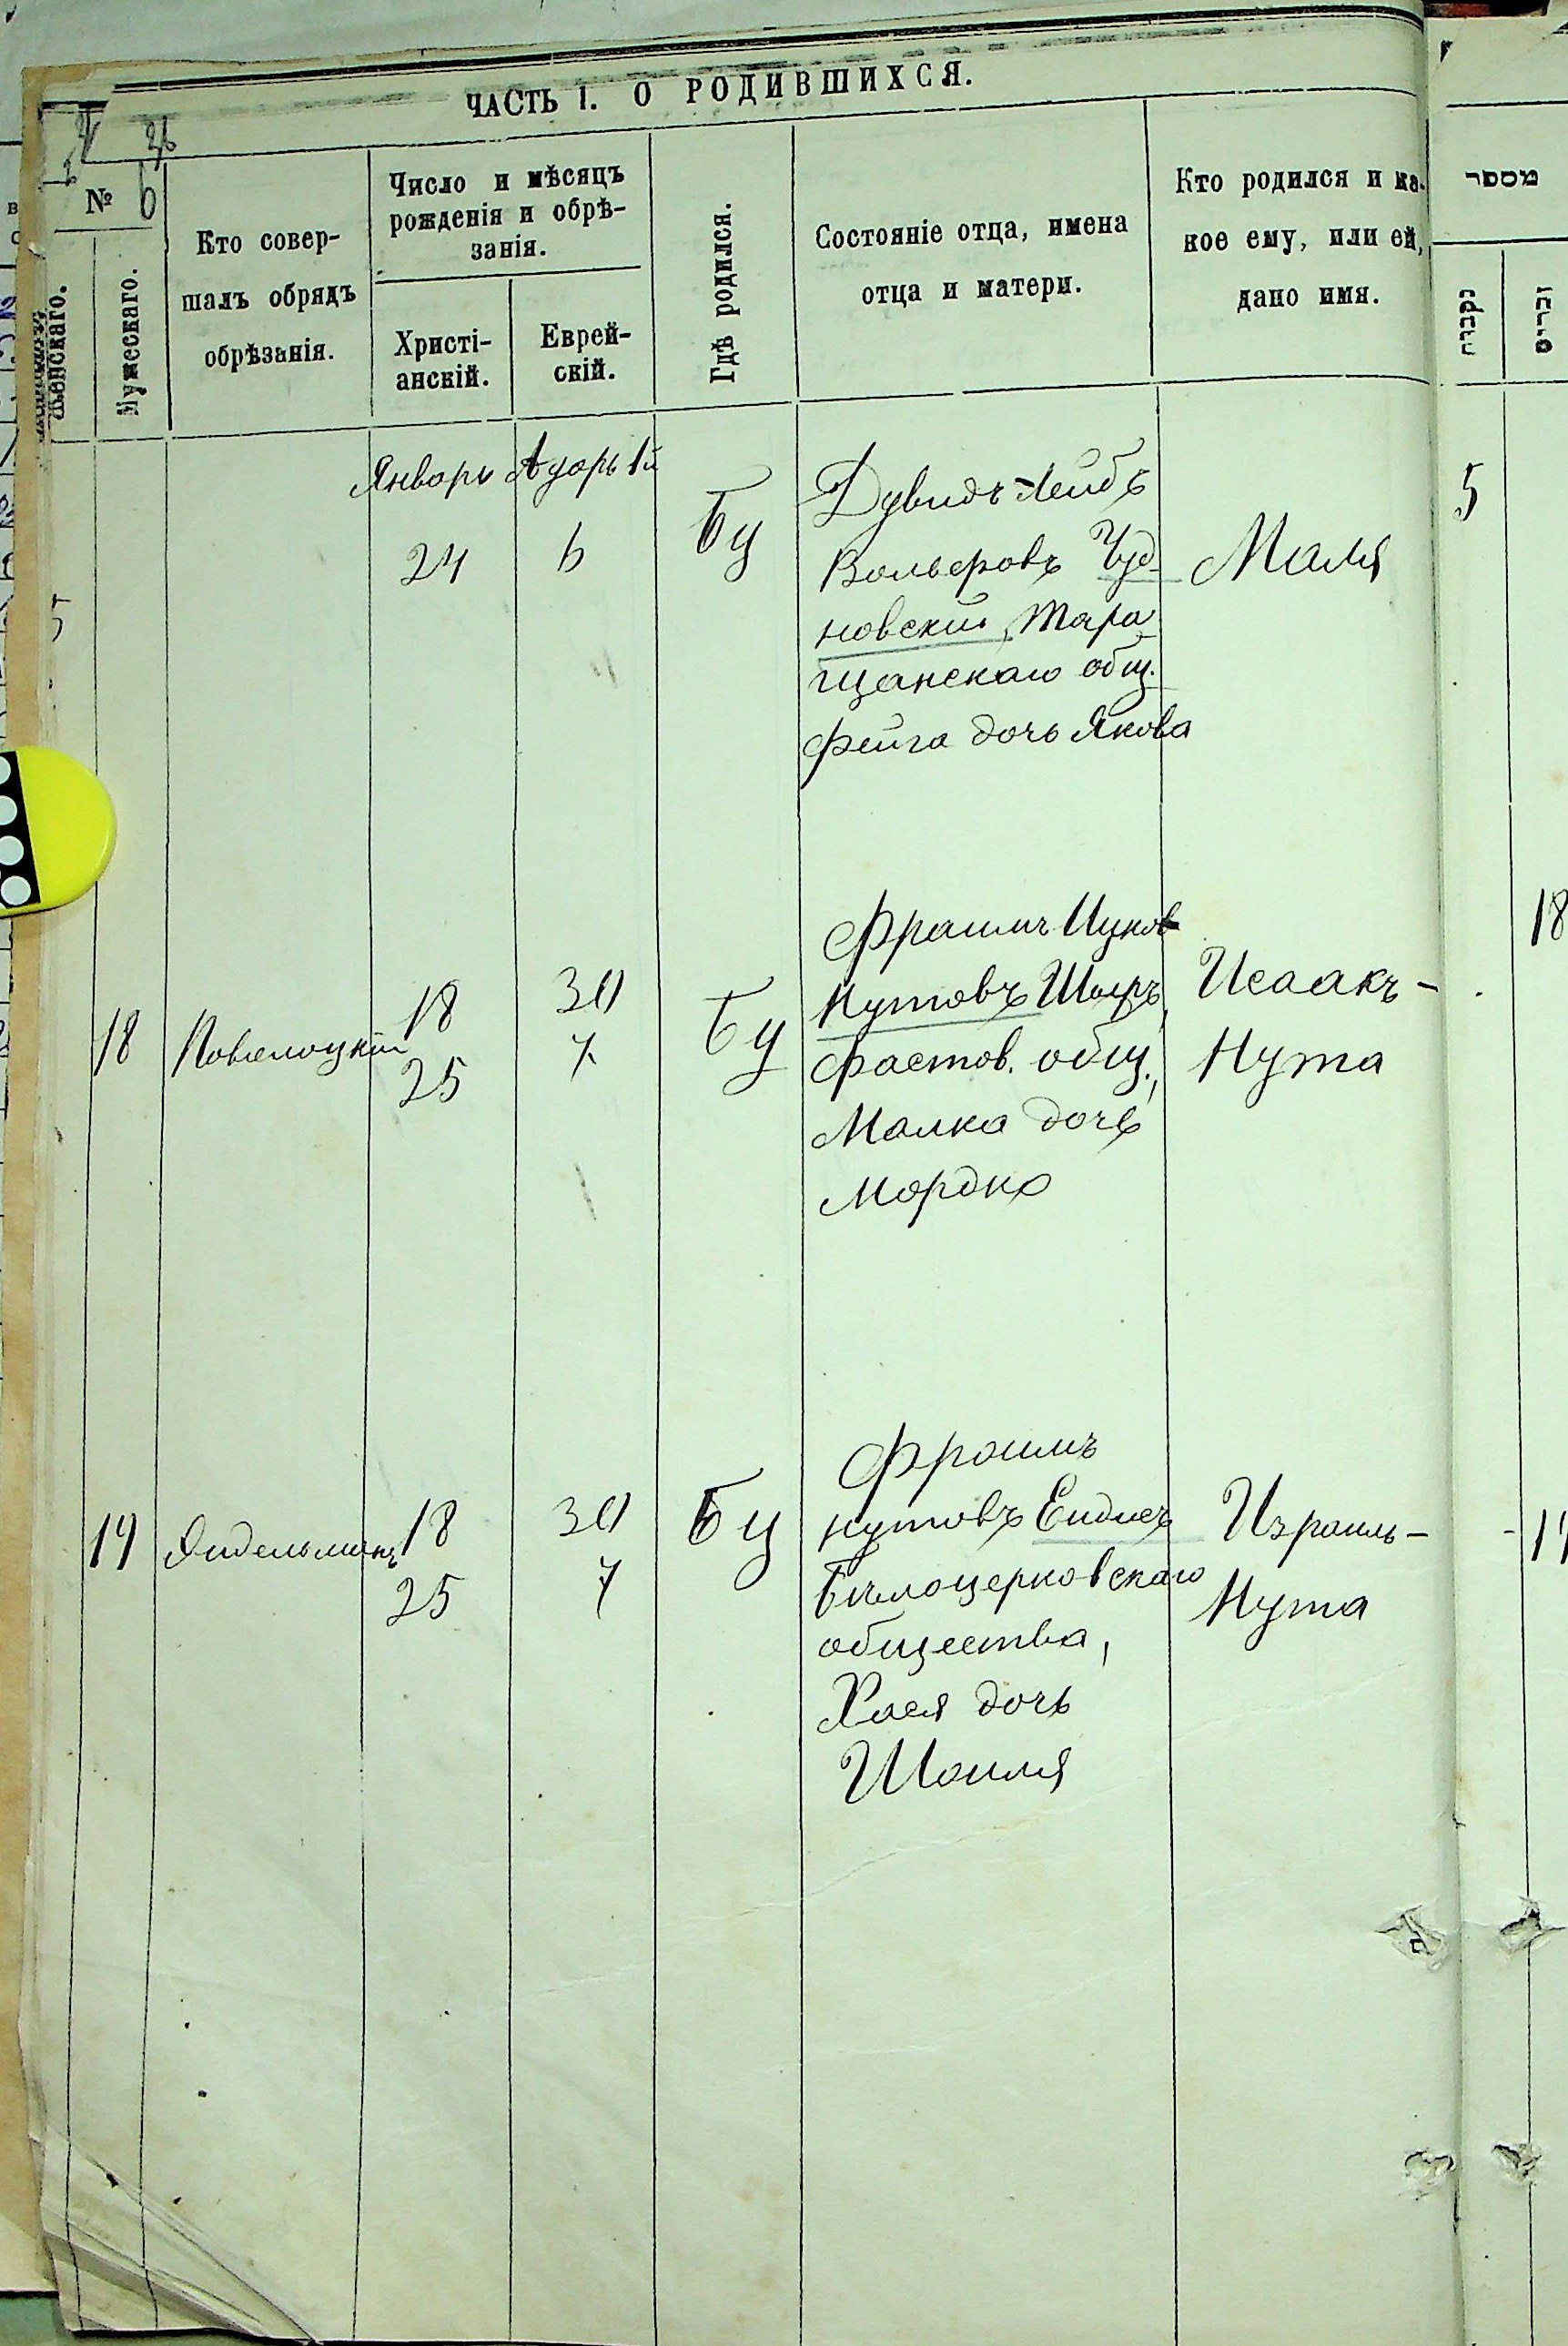 ЧАСТЬ I. О РОДИВШИХСЯ.
№
6
Женскаго.
Мужескаго.
Кто совер-
шалъ обрядъ
обрѣзанія.
Число и мѣсяцъ
рожденія и обрѣ-
занія.
Христі-
анскій.
Еврей-
скій.
Гдѣ родился.
Состояніе отца, имена
отца и матери.
Кто родился и ка-
кое ему, или ей,
дано имя.
מספר
נקבות
זכרים
Январь Адаръ 1й
5
24
6
Бц
Дувидъ-Лейбъ
Вольфровъ Чуд-
новскій, Тара
щанскаго общ.
Фейга дочь Якова
Маля
5
18
18
25
30
7
Бц
Фраимъ Ицков
Нутовъ
Фастов. общ.,
Малка дочь
Мордко
Исаакъ-
Нута
18
19
18
25
30
7
Бц
Фроимъ
Нутовъ
Бѣлоцерковскаго
общества,
Хася дочь
Шоиля
Израиль-
Нута